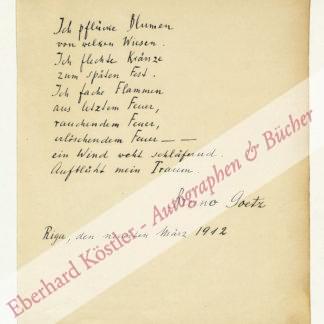 Ich pflücke Blumen
von welken Wiesen.
Ich flechte Kränze
zum späten Fest.
Ich fache Flammen
aus letztem Feuer,
rauchendem Feuer,
erlöschendem Feuer — —
ein Wind weht schläfernd.
Aufblüht mein Traum.
Bruno Goetz
Riga, den neunten März 1912
Eberhard Köstler - Autographen & Bücher